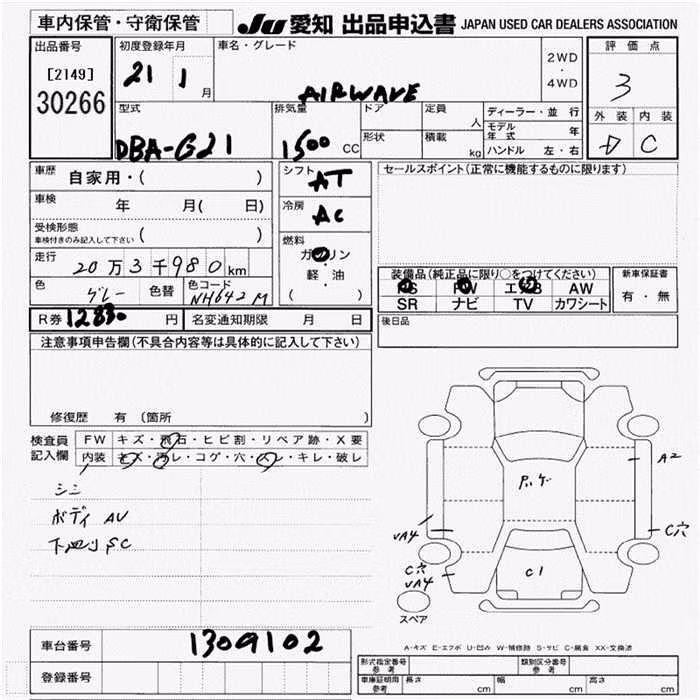 車内保管・守衛保管
JU 愛知 出品申込書 JAPAN USED CAR DEALERS ASSOCIATION
出品番号
[2149]
30266
初度登録年月
21 1 月
車名・グレード
AIRWAVE
2WD
・
4WD
評価点
3
外装 内装
D C
型式
DBA-G21
排気量
1500 CC
ドア
形状
定員
人
積載
kg
ディーラー・並 行
モデル年式 年
ハンドル 左・右
車歴 自家用・( )
車検 年 月( 日)
受検形態
車検付きのみ記入して下さい ( )
走行 20万3千980km
色 グレー 色替 色コード NH642M
シフト AT
冷房 AC
燃料
ガソリン
軽・油
( )
セールスポイント(正常に機能するものに限ります)
装備品(純正品に限り○をつけてください)
PS PW エアB AW
SR ナビ TV カワシート
新車保証書
有・無
R券 12830 円 名変通知期限 月 日
後日品
注意事項申告欄(不具合内容等は具体的に記入して下さい)
修復歴 有 (箇所 )
検査員
記入欄
FW キズ・飛石・ヒビ割・リペア跡・X要
内装 キズ・汚レ・コゲ・穴・スレ・キレ・破レ
シミ
ボディ AU
下廻り SC
A2
C穴
UA4
C穴
UA4
C1
スペア
A-キズ E-エクボ U-凹み W-補修跡 S-サビ C-腐食 XX-交換済
車台番号 1309102
登録番号
形式指定番号
参考
類別区分番号
参考
車庫証明用
参考
長さ cm 幅 cm 高さ cm